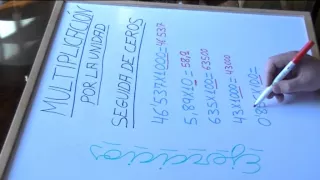 MULTIPLICACIÓN
POR LA UNIDAD
SEGUIDA DE CEROS
46'537x1000=46537
5,89x10=58,9
635x100=63500
43x1000=43000
Ejercicios